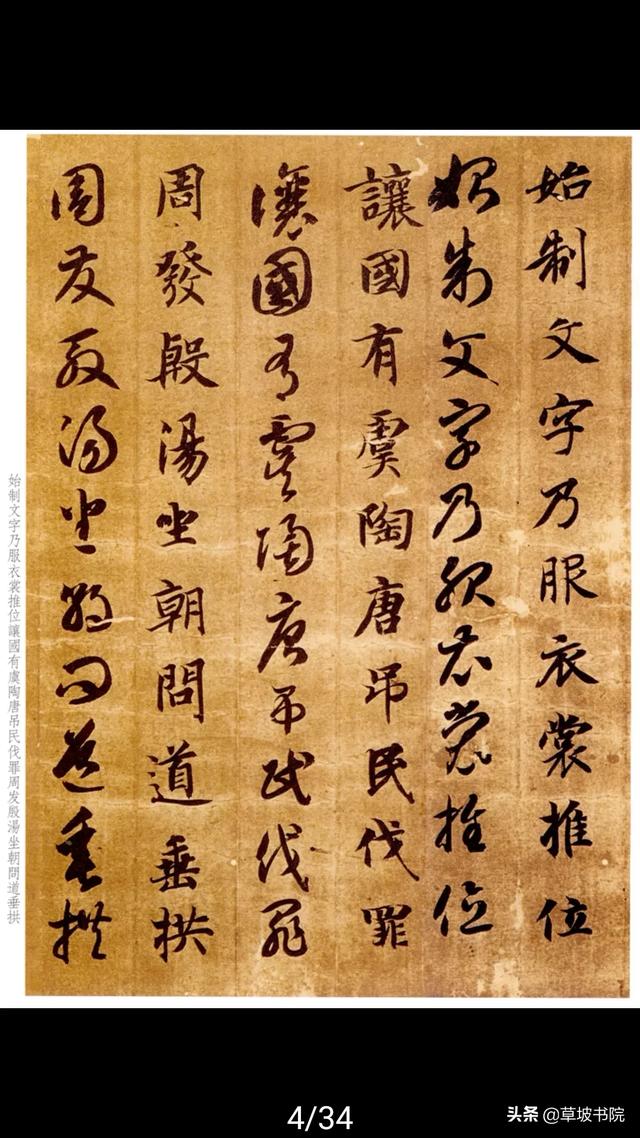 始制文字乃服衣裳推位
始制文字乃服衣裳推位
讓國有虞陶唐吊民伐罪
讓國有虞陶唐吊民伐罪
周發殷湯坐朝問道垂拱
周發殷湯坐朝問道垂拱
始制文字乃服衣裳推位讓國有虞陶唐吊民伐罪周发殷湯坐朝問道垂拱
4/34
头条 @草坡书院